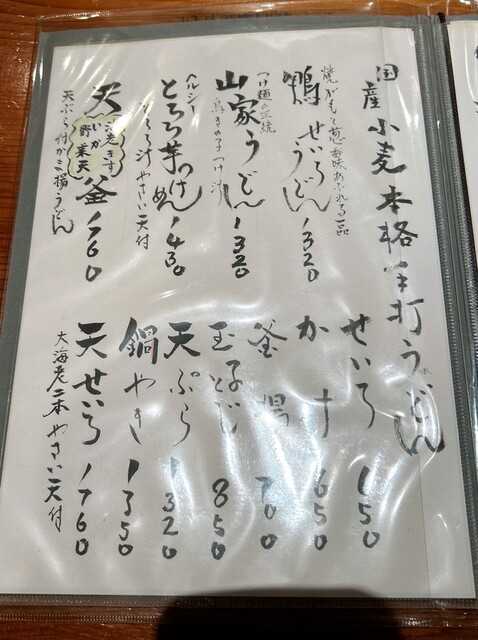 国産小麦本格手打うどん
焼がもと葱 香味あふれる一品
鴨せいろうどん 1320
つけ麺の伝統
山家うどん 1320
鳥きのこつけ汁
ヘルシー
とろろ芋つけめん 1430
とろろ汁 やさい天付
天釜 1760
野菜天
天ぷら付かま揚うどん
せいろ 650
かけ 650
釜揚 700
玉子とじ 850
天ぷら 1320
鍋やき 1350
天せいろ 1760
大海老二本 やさい天付